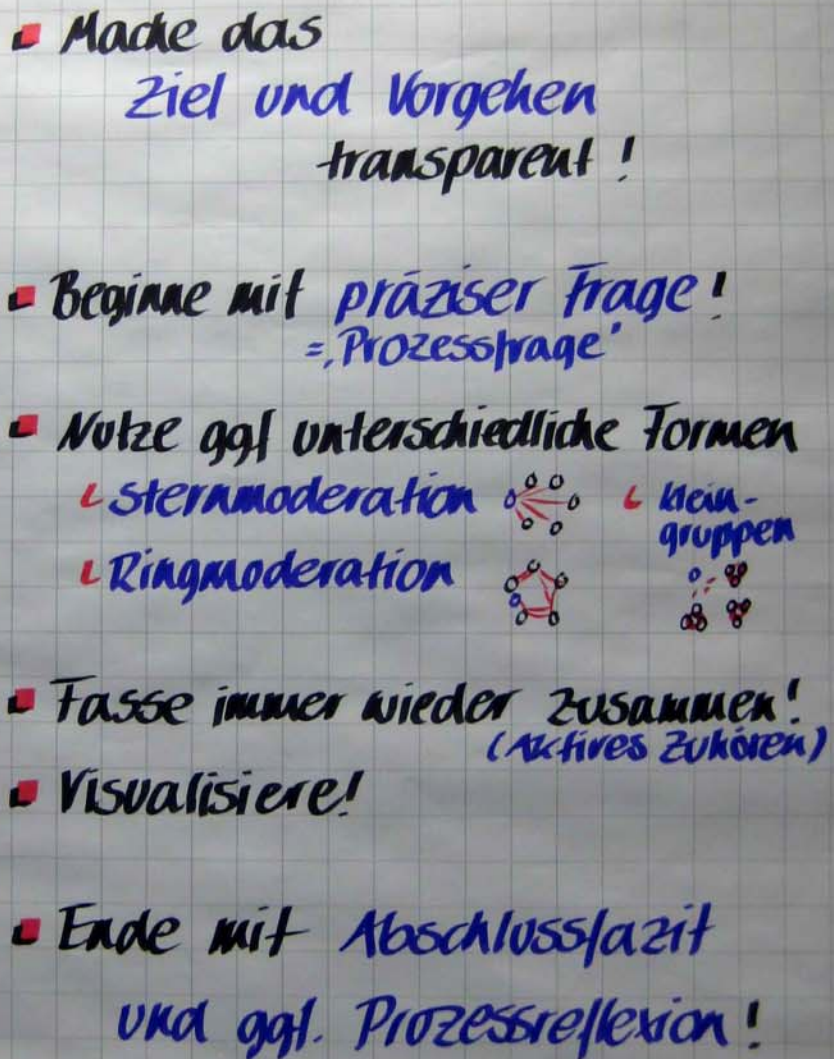 Mache das
Ziel und Vorgehen
transparent!
Beginne mit präziser Frage!
= "Prozessfrage"
Nutze ggf unterschiedliche Formen
Sternmoderation
Klein-
gruppen
Ringmoderation
Fasse immer wieder zusammen!
(Aktives Zuhören)
Visualisiere!
Ende mit Abschlussfazit
und ggf. Prozessreflexion!